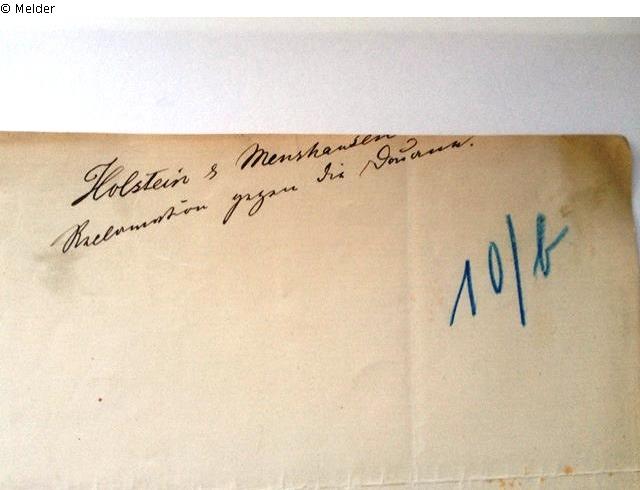 © Melder
Holstein & Menshausen
Reclamation gegen die Douane.
10/b